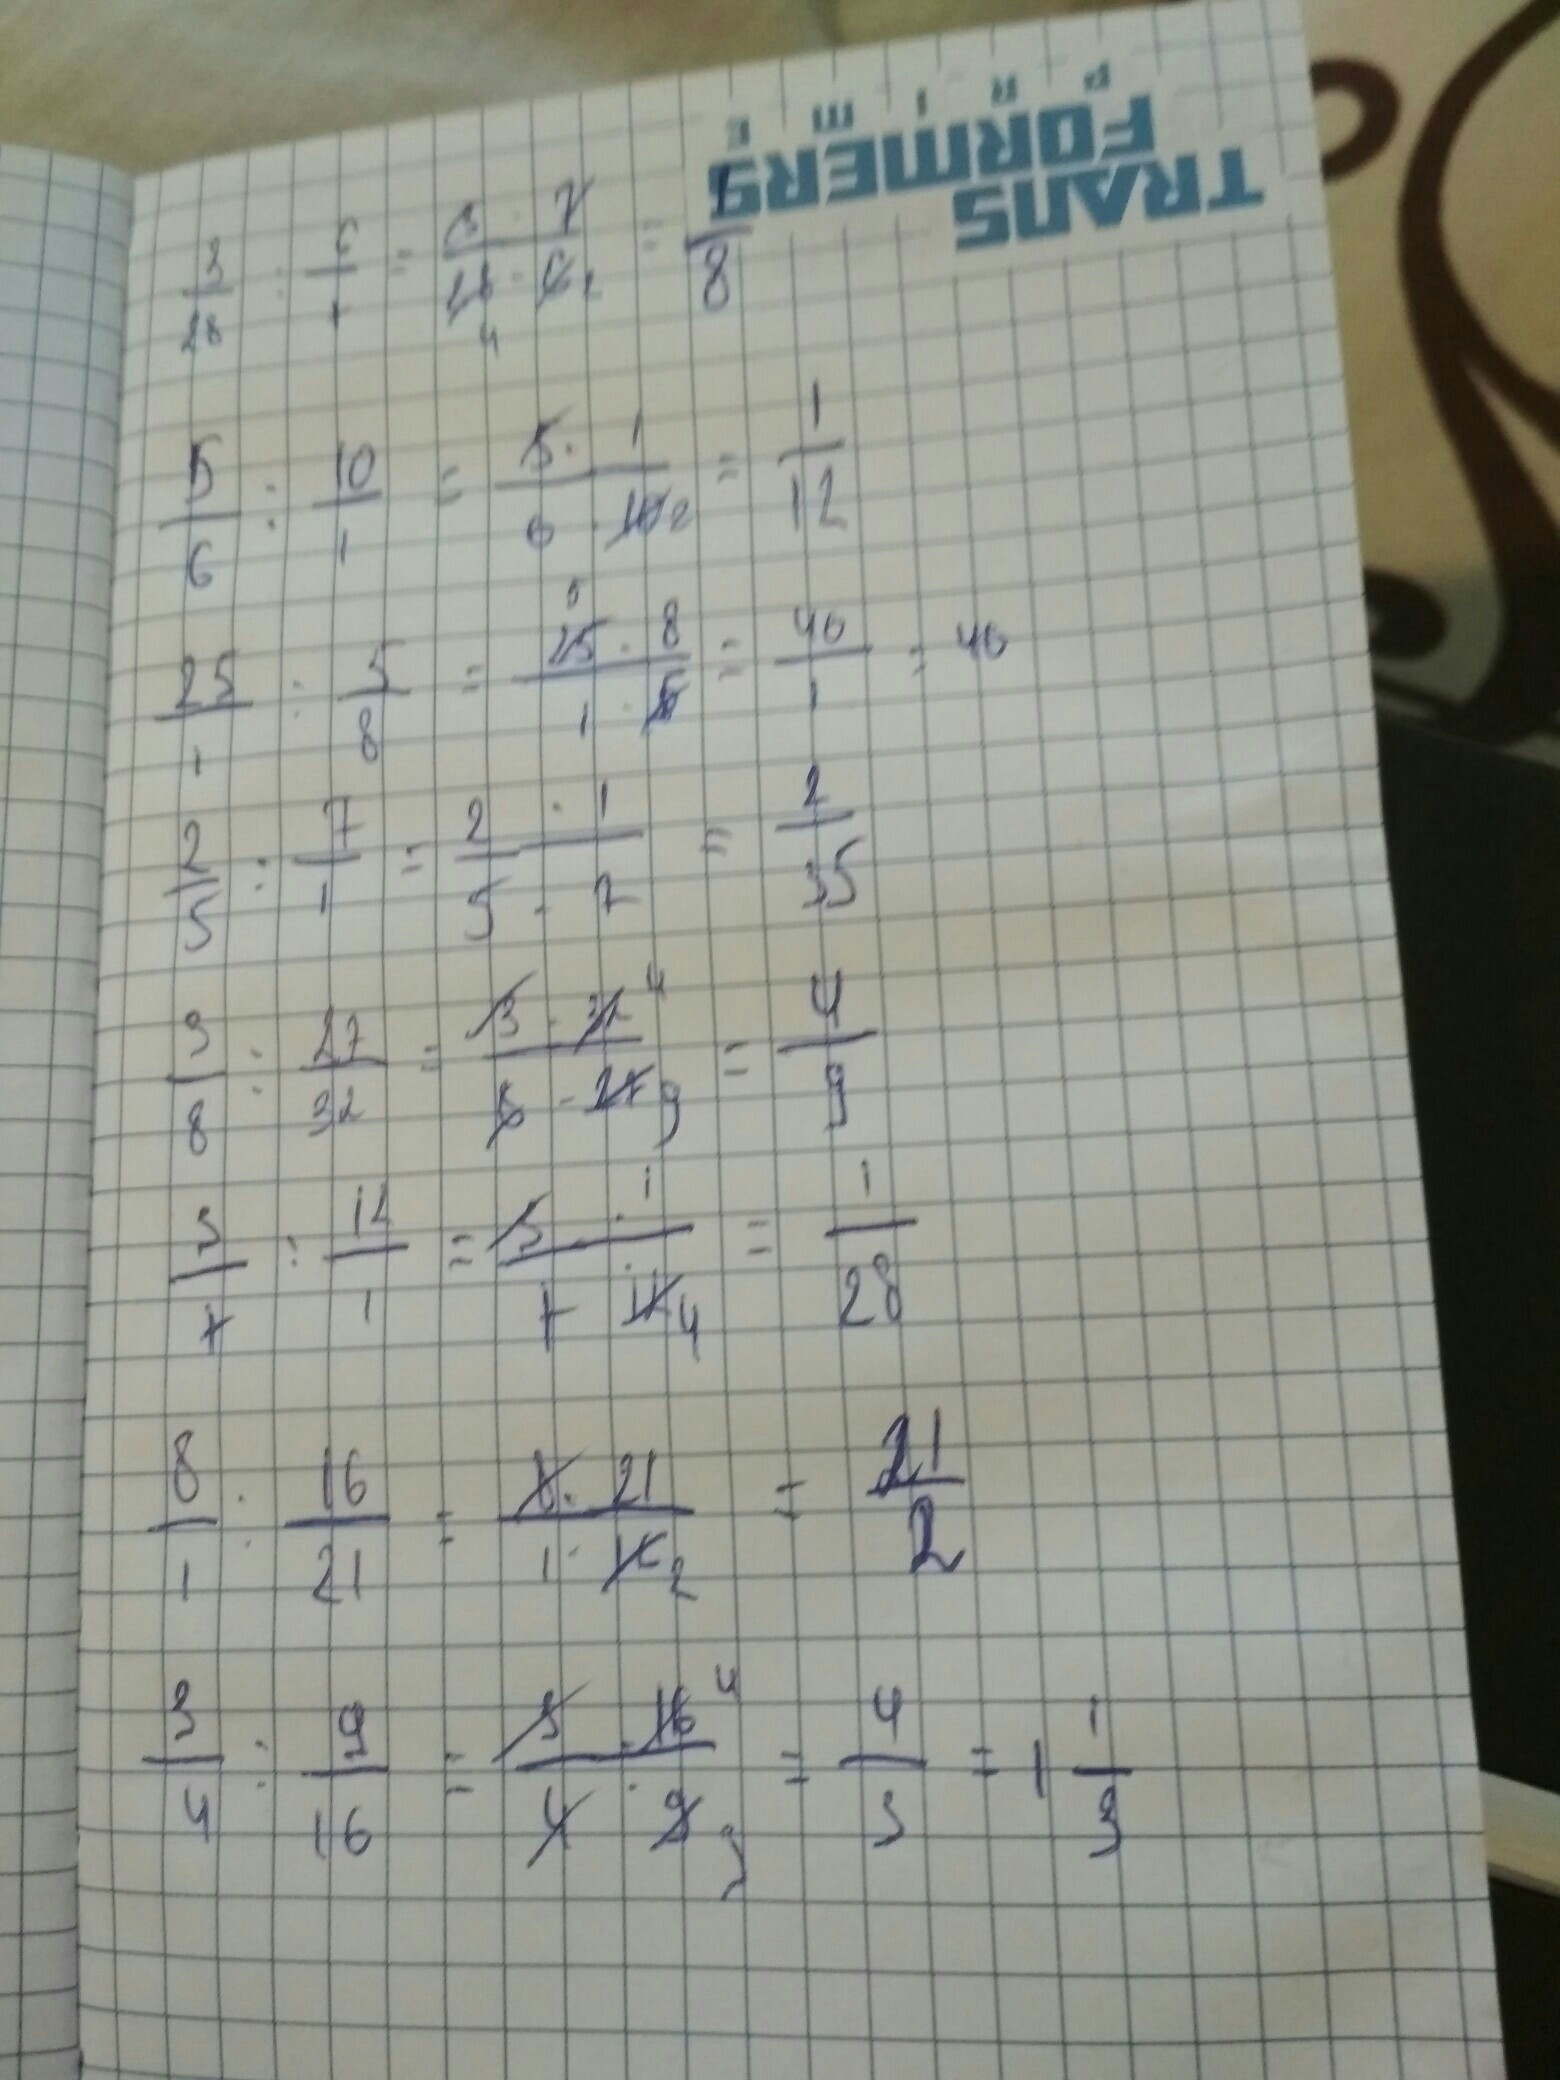 TRANS
FORMERS
PRIME
3/28 : 6/7 = 3·7/28·6 4 2 = 1/8
5/6 : 10/1 = 5·1/6·10 2 = 1/12
25/1 : 5/8 = 5 25·8/1·5 = 40/1 = 40
2/5 : 7/1 = 2·1/5·7 = 2/35
3/8 : 27/32 = 3·32 4/8·27 9 = 4/9
3/7 : 12/1 = 3·1/7·12 4 = 1/28
8/1 : 16/21 = 8·21/1·16 2 = 21/2
3/4 : 9/16 = 3·16 4/4·9 3 = 4/3 = 1 1/3